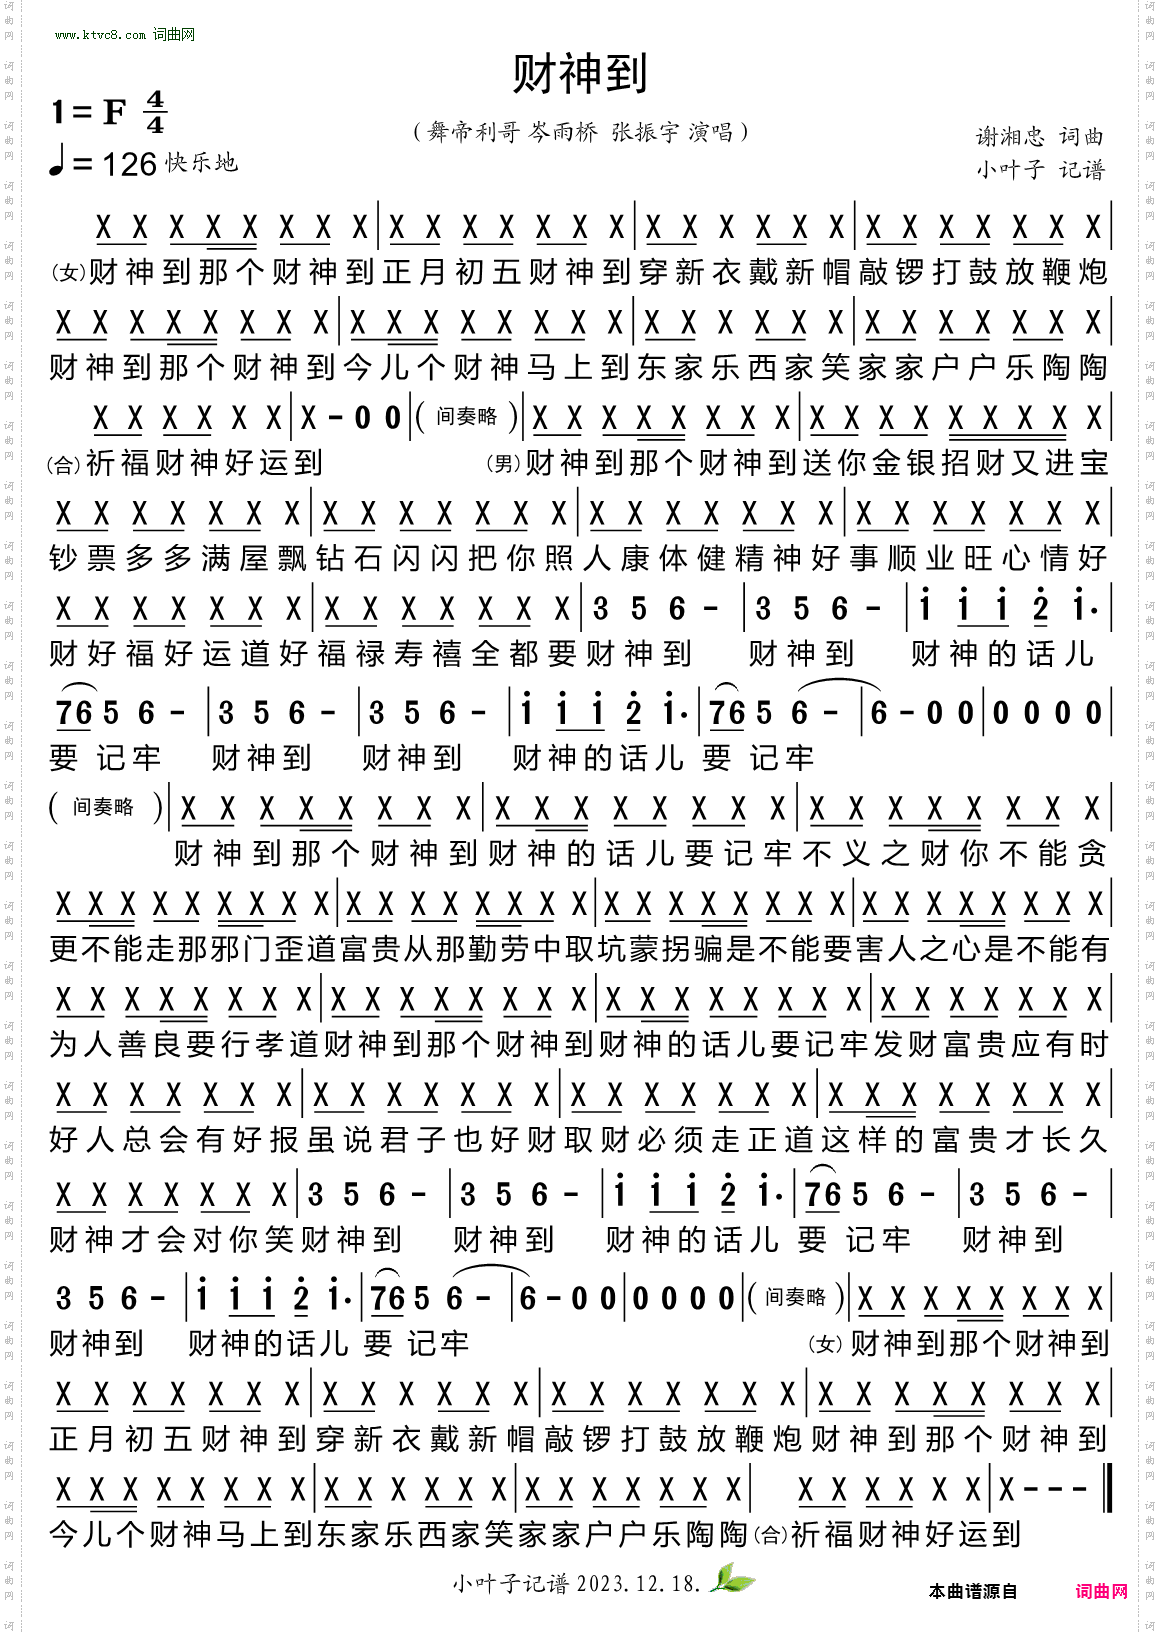 www.ktvc8.com 词曲网
财神到
1=F 4/4
（舞帝利哥 岑雨桥 张振宇 演唱）
谢湘忠 词曲
♩=126 快乐地
小叶子 记谱
X X X X X X X X | X X X X X X X | X X X X X X | X X X X X X X |
（女）财神到那个财神到正月初五财神到穿新衣戴新帽敲锣打鼓放鞭炮
X X X X X X X X | X X X X X X X X | X X X X X X | X X X X X X X |
财神到那个财神到今儿个财神马上到东家乐西家笑家家户户乐陶陶
X X X X X X | X - 0 0 |（间奏略）| X X X X X X X X | X X X X X X X X |
（合）祈福财神好运到 （男）财神到那个财神到送你金银招财又进宝
X X X X X X X | X X X X X X X | X X X X X X X | X X X X X X X |
钞票多多满屋飘钻石闪闪把你照人康体健精神好事顺业旺心情好
X X X X X X X | X X X X X X X | 3 5 6 - | 3 5 6 - | i i i 2 i. |
财好福好运道好福禄寿禧全都要财神到 财神到 财神的话儿
76 5 6 - | 3 5 6 - | 3 5 6 - | i i i 2 i. | 76 5 6 - | 6 - 0 0 | 0 0 0 0 |
要 记牢 财神到 财神到 财神的话儿 要 记牢
（间奏略）| X X X X X X X X | X X X X X X X X | X X X X X X X X |
财神到那个财神到财神的话儿要记牢不义之财你不能贪
X X X X X X X X X | X X X X X X X X | X X X X X X X X | X X X X X X X X |
更不能走那邪门歪道富贵从那勤劳中取坑蒙拐骗是不能要害人之心是不能有
X X X X X X X X | X X X X X X X X | X X X X X X X X | X X X X X X X |
为人善良要行孝道财神到那个财神到财神的话儿要记牢发财富贵应有时
X X X X X X X | X X X X X X X | X X X X X X X | X X X X X X X X |
好人总会有好报虽说君子也好财取财必须走正道这样的富贵才长久
X X X X X X X | 3 5 6 - | 3 5 6 - | i i i 2 i. | 76 5 6 - | 3 5 6 - |
财神才会对你笑财神到 财神到 财神的话儿 要 记牢 财神到
3 5 6 - | i i i 2 i. | 76 5 6 - | 6 - 0 0 | 0 0 0 0 |（间奏略）| X X X X X X X X |
财神到 财神的话儿 要 记牢 （女）财神到那个财神到
X X X X X X X | X X X X X X | X X X X X X X | X X X X X X X X |
正月初五财神到穿新衣戴新帽敲锣打鼓放鞭炮财神到那个财神到
X X X X X X X X | X X X X X X | X X X X X X X | X X X X X X | X - - - |
今儿个财神马上到东家乐西家笑家家户户乐陶陶（合）祈福财神好运到
小叶子记谱 2023.12.18.
本曲谱源自 词曲网